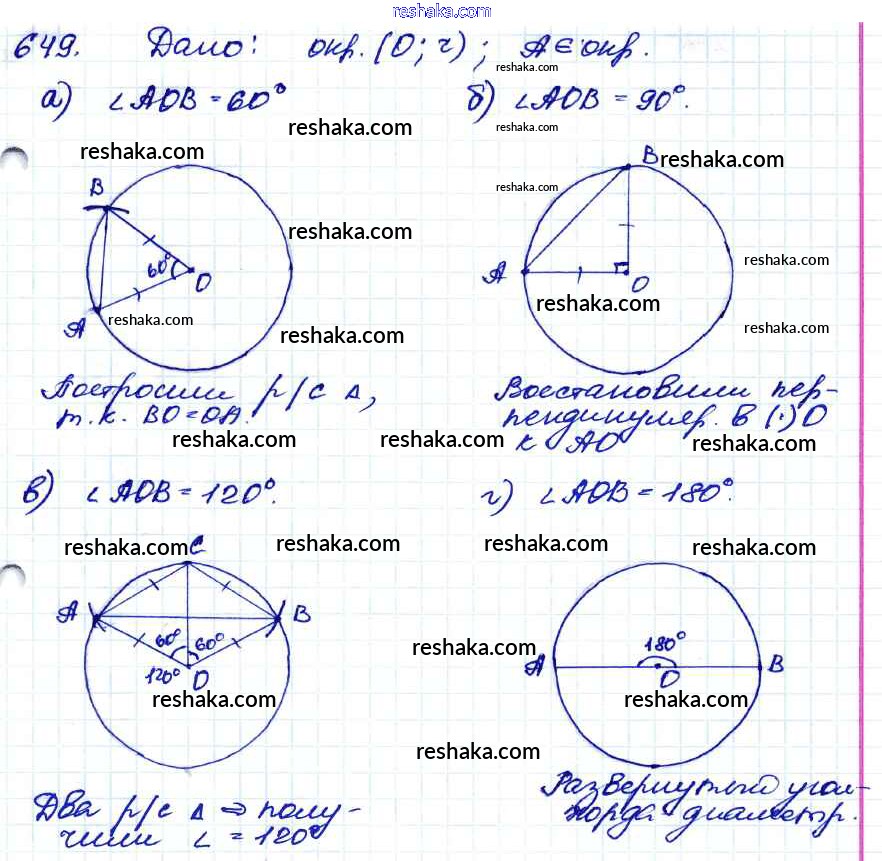 reshaka.com
649. Дано: окр. (O; r); A∈окр.
reshaka.com
а) ∠AOB = 60° б) ∠AOB = 90°.
reshaka.com reshaka.com
reshaka.com B reshaka.com
B reshaka.com
reshaka.com
60° O A O reshaka.com
reshaka.com
A reshaka.com reshaka.com
reshaka.com
Построили р/с Δ, Восстановили пер-
т.к. BO=OA. пендикуляр. в (·) O
reshaka.com reshaka.com к AO reshaka.com
в) ∠AOB = 120°. г) ∠AOB = 180°.
reshaka.com C reshaka.com reshaka.com reshaka.com
A B
60° 60° 180°
reshaka.com
120° O A O B
reshaka.com reshaka.com
reshaka.com
Развернутый угол-
Два р/с Δ ⇒ полу- хорда диаметр.
чили ∠ = 120°